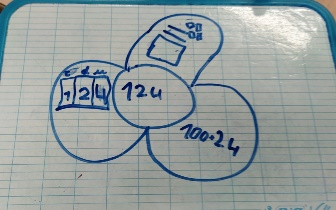 c d u
1 2 4
124
100+24